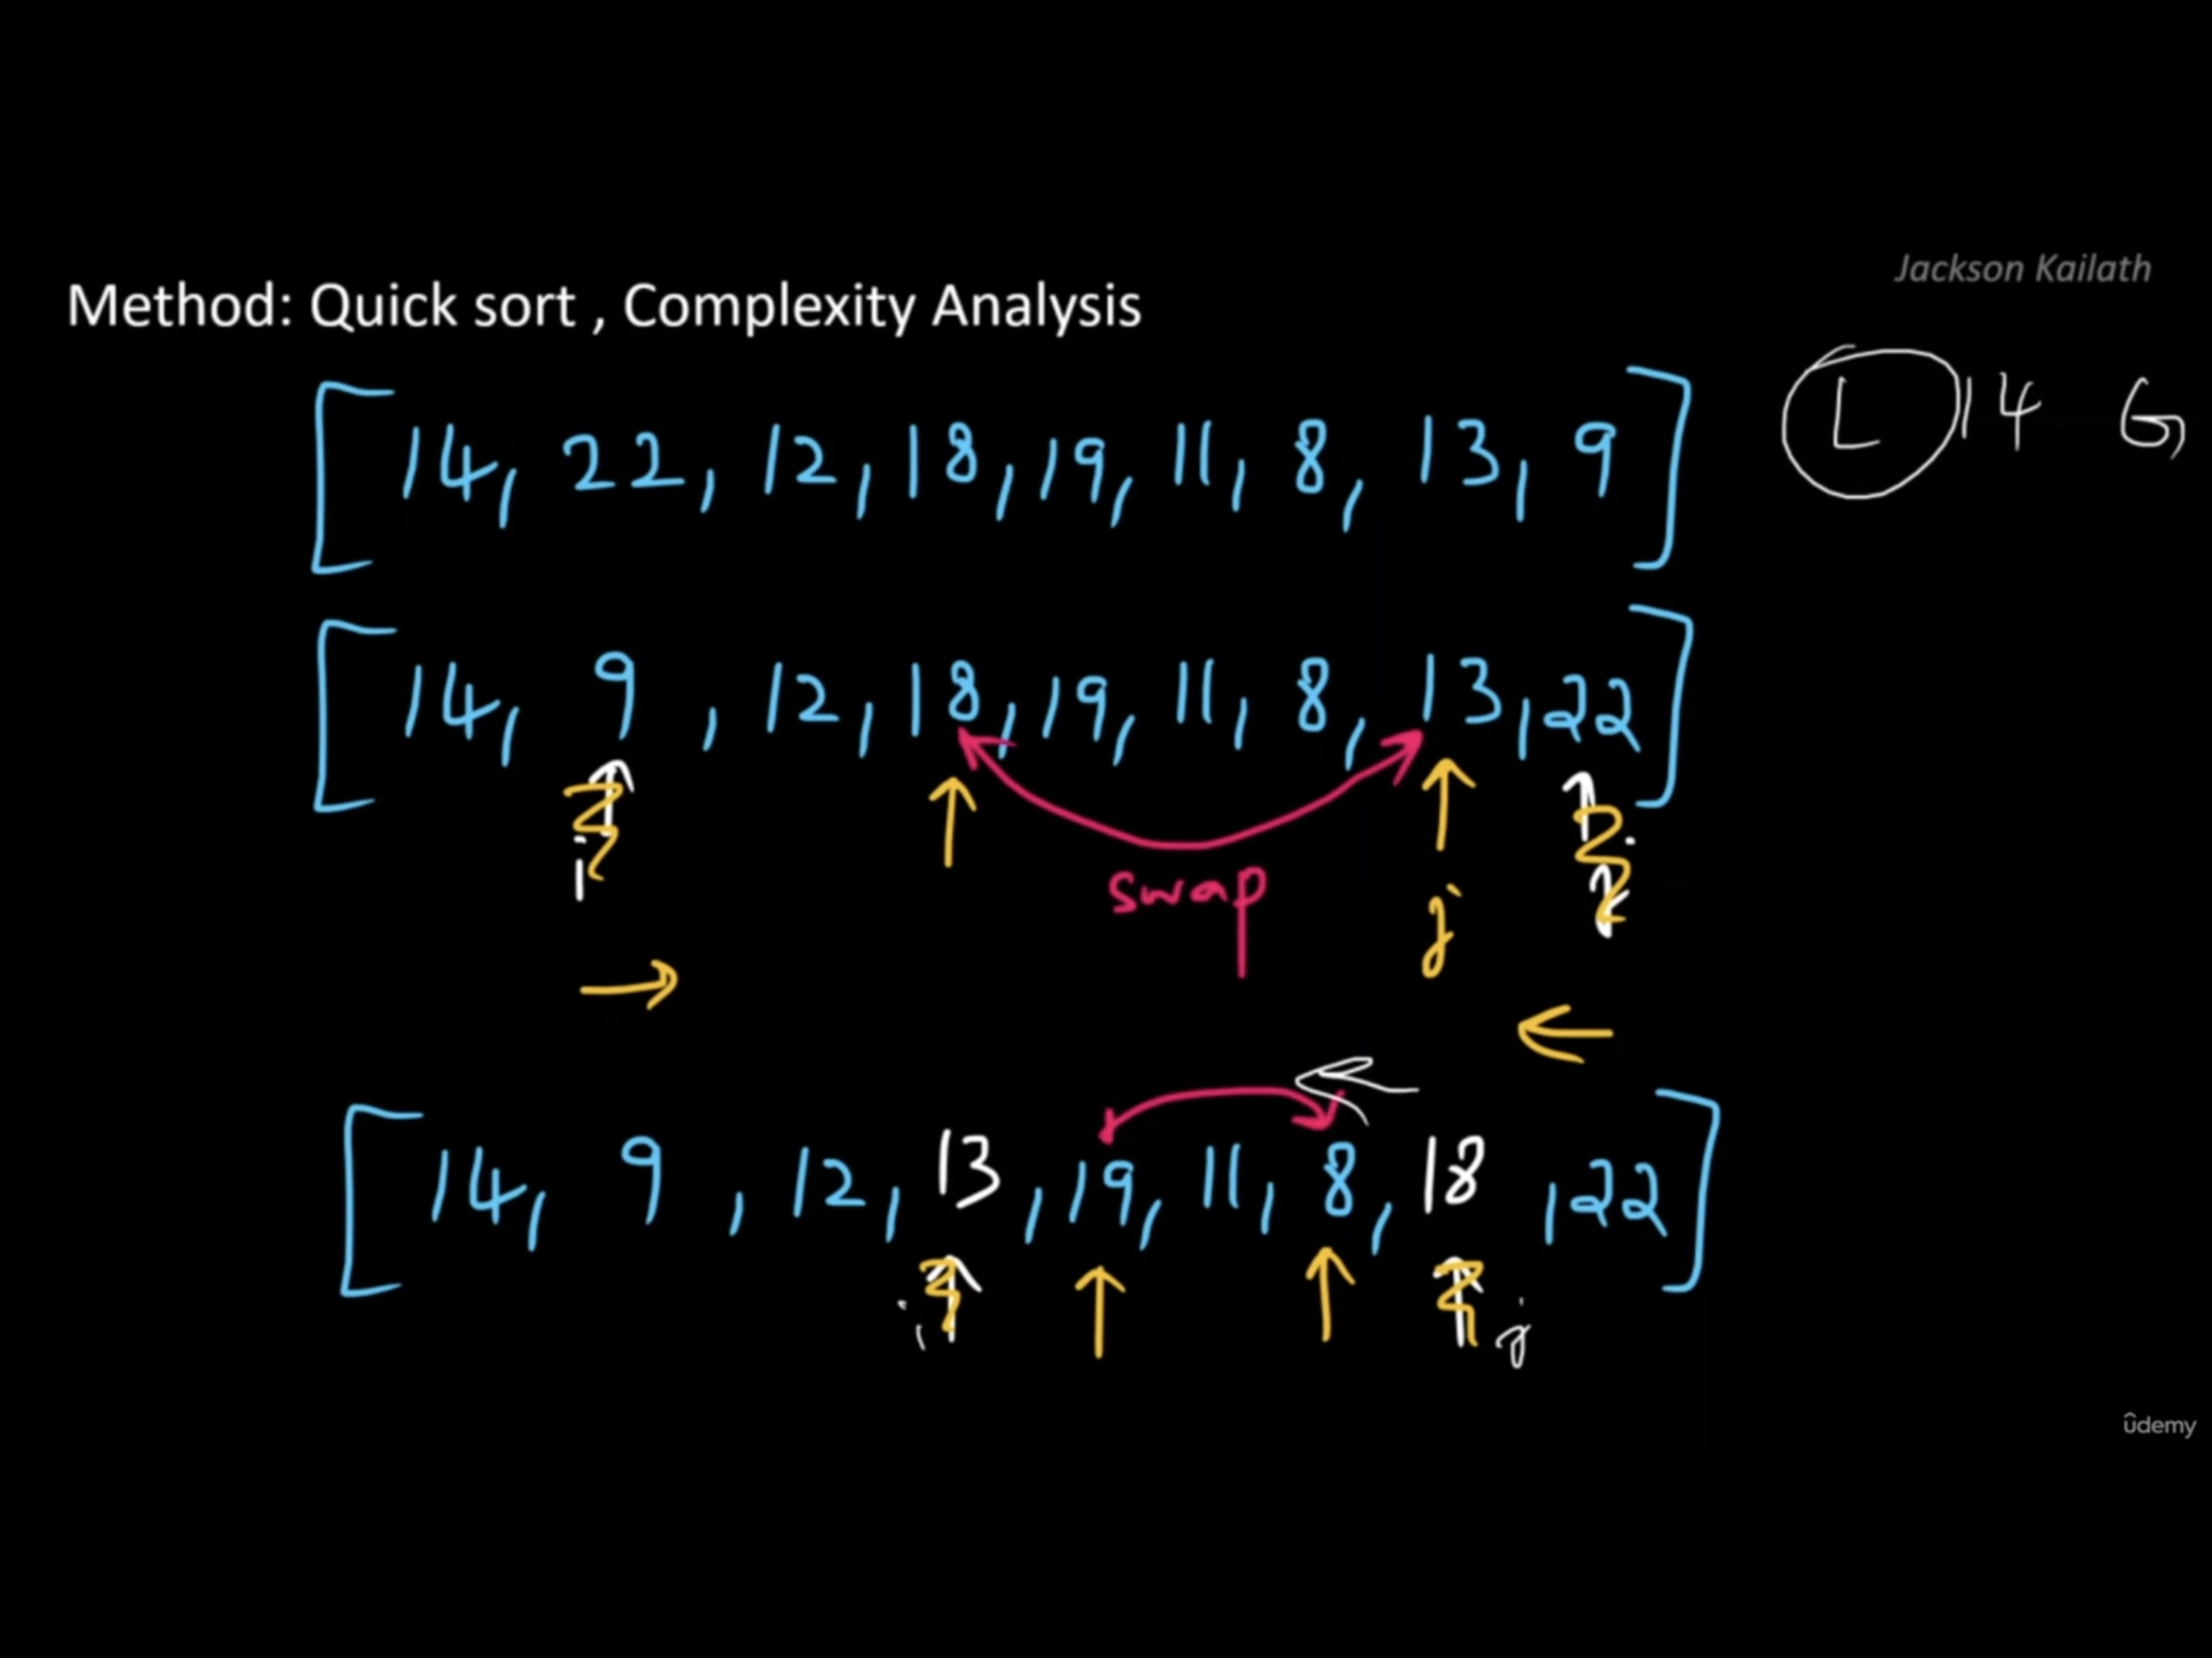 Jackson Kailath
Method: Quick sort , Complexity Analysis
L 14 G
[14, 22, 12, 18, 19, 11, 8, 13, 9]
[14, 9 , 12, 18, 19, 11, 8, 13, 22]
i
swap
j
[14, 9 , 12, 13 , 19, 11, 8, 18 , 22]
i j
ûdemy